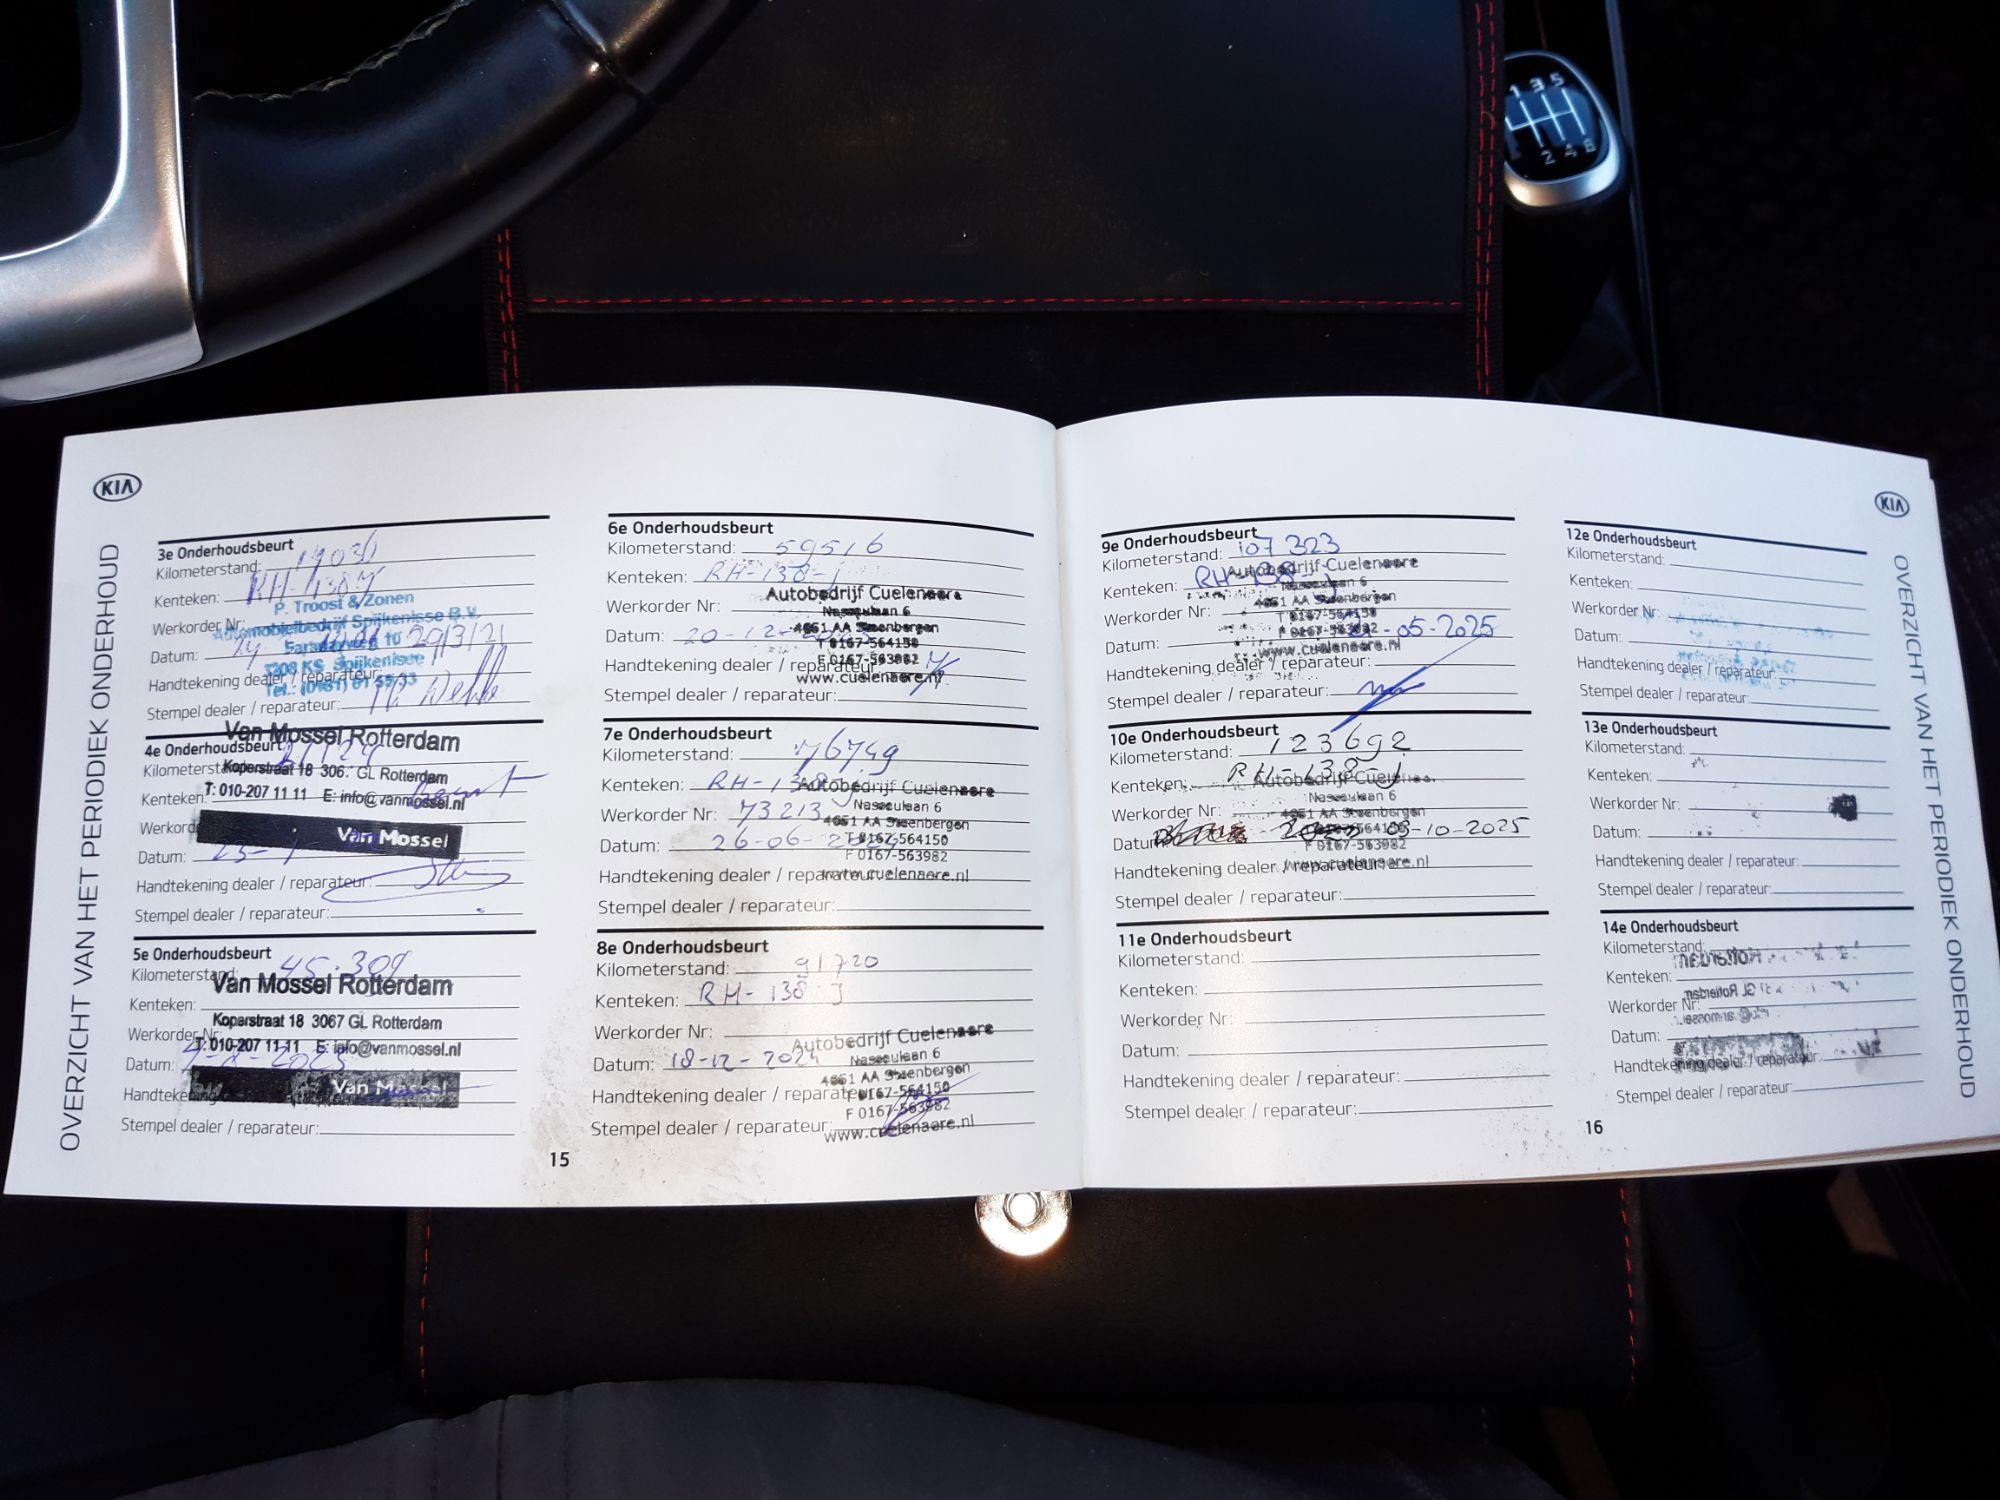 1 3 5
2 4 6
KIA
OVERZICHT VAN HET PERIODIEK ONDERHOUD
3e Onderhoudsbeurt
Kilometerstand:
Kenteken:
P. Troost & Zonen
Werkorder Nr:
Automobielbedrijf Spijkenisse B.V.
Datum: 29/3/21
Spijkenisse
Handtekening dealer / reparateur:
Stempel dealer / reparateur:
Van Mossel Rotterdam
4e Onderhoudsbeurt
Koperstraat 18 306 GL Rotterdam
Kenteken:
T: 010-207 11 11 E: info@vanmossel.nl
Van Mossel
Datum: 23-1
Handtekening dealer / reparateur:
Stempel dealer / reparateur:
5e Onderhoudsbeurt
Kilometerstand: 45.309
Van Mossel Rotterdam
Kenteken:
Koperstraat 18 3067 GL Rotterdam
Werkorder Nr:
T: 010-207 11 11 E: info@vanmossel.nl
Datum: 2023
Van Mossel
Stempel dealer / reparateur:
6e Onderhoudsbeurt
Kilometerstand: 59516
Kenteken: RH-138-J
Autobedrijf Cuelenaere
Werkorder Nr:
Nassaulaan 6
4651 AA Steenbergen
Datum: 20-12-
T 0167-564150
Handtekening dealer / reparateur:
F 0167-563982
www.cuelenaere.nl
Stempel dealer / reparateur:
7e Onderhoudsbeurt
Kilometerstand: 76749
Kenteken: RH-138-J
Autobedrijf Cuelenaere
Nassaulaan 6
Werkorder Nr: 73213
4651 AA Steenbergen
Datum: 26-06-2024
T 0167-564150
F 0167-563982
Handtekening dealer / reparateur:
www.cuelenaere.nl
Stempel dealer / reparateur:
8e Onderhoudsbeurt
Kilometerstand: 91720
Kenteken: RH-138 J
Werkorder Nr:
Autobedrijf Cuelenaere
Nassaulaan 6
Datum: 18-12-2024
4651 AA Steenbergen
Handtekening dealer / reparateur:
T 0167-564150
F 0167-563982
Stempel dealer / reparateur:
www.cuelenaere.nl
15
9e Onderhoudsbeurt
Kilometerstand: 107323
Autobedrijf Cuelenaere
Kenteken: RH-138-J
Nassaulaan 6
4651 AA Steenbergen
Werkorder Nr:
T 0167-564150
F 0167-563982
Datum: -05-2025
www.cuelenaere.nl
Handtekening dealer / reparateur:
Stempel dealer / reparateur:
10e Onderhoudsbeurt
Kilometerstand: 123692
Kenteken: RH-138-J
Autobedrijf Cuelenaere
Nassaulaan 6
Werkorder Nr:
4651 AA Steenbergen
Datum: 03-10-2025
F 0167-563982
Handtekening dealer / reparateur:
www.cuelenaere.nl
Stempel dealer / reparateur:
11e Onderhoudsbeurt
Kilometerstand:
Kenteken:
Werkorder Nr:
Datum:
Handtekening dealer / reparateur:
Stempel dealer / reparateur:
12e Onderhoudsbeurt
Kilometerstand:
Kenteken:
Werkorder Nr:
Datum:
Handtekening dealer / reparateur:
Stempel dealer / reparateur:
13e Onderhoudsbeurt
Kilometerstand:
Kenteken:
Werkorder Nr:
Datum:
Handtekening dealer / reparateur:
Stempel dealer / reparateur:
14e Onderhoudsbeurt
Kilometerstand:
Kenteken:
Werkorder Nr:
Datum:
Handtekening dealer / reparateur:
Stempel dealer / reparateur:
16
KIA
OVERZICHT VAN HET PERIODIEK ONDERHOUD